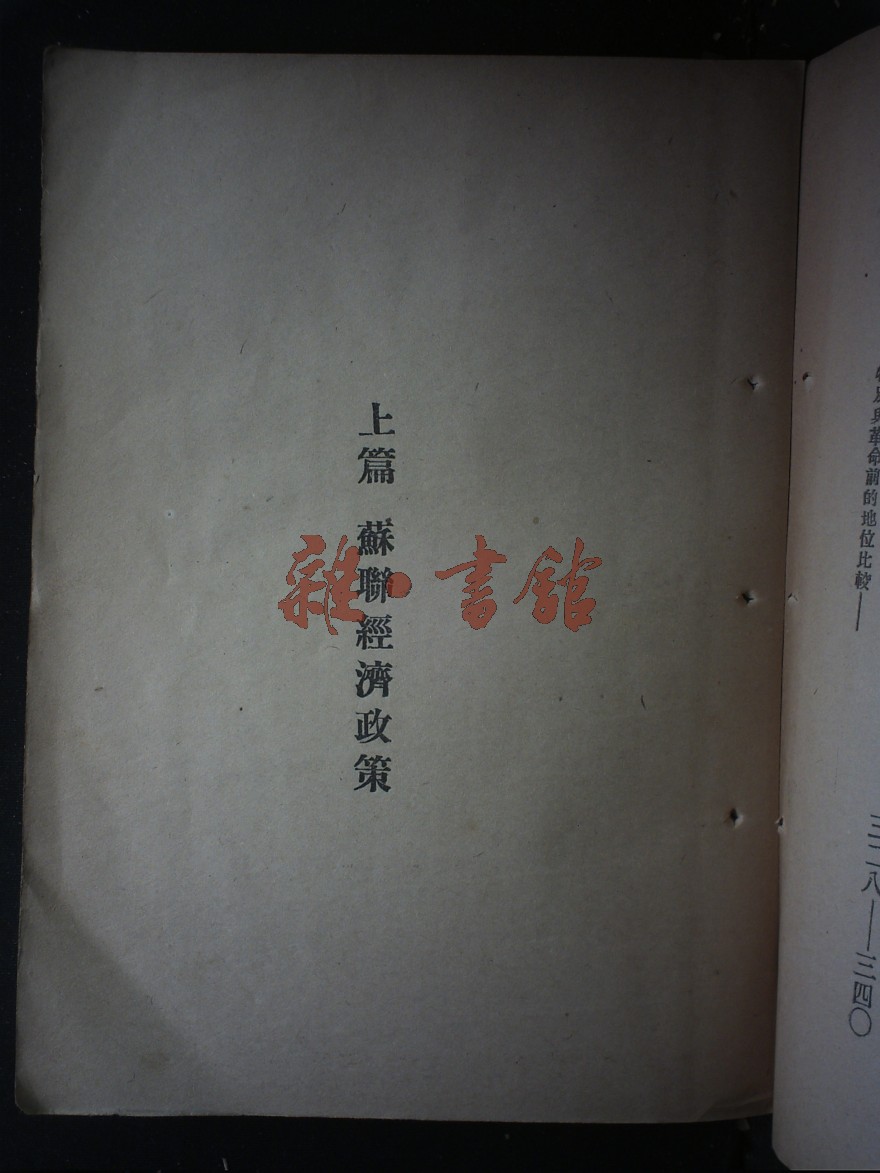 與革命前的地位比較——
三二八——三四〇
上篇 蘇聯經濟政策
雜·書館